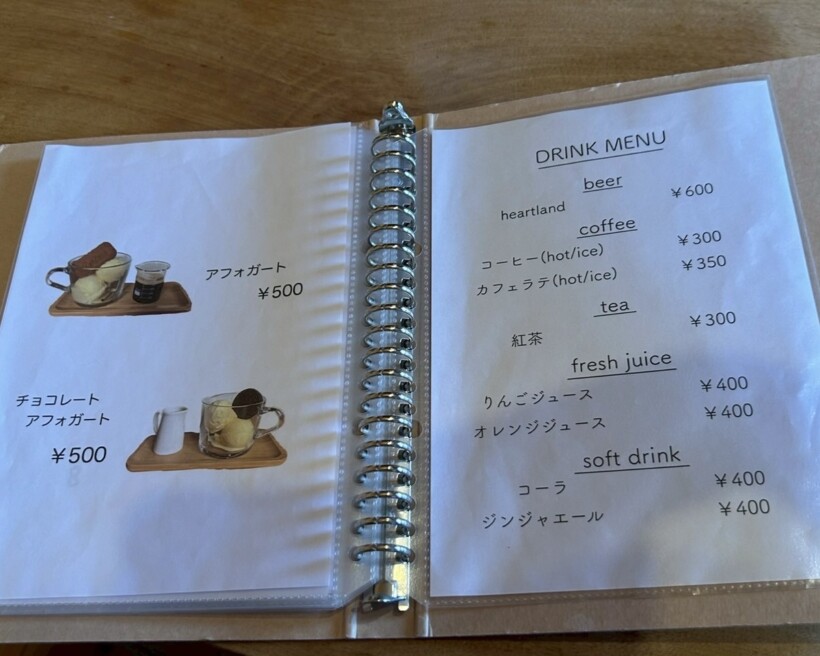 アフォガート
￥500
チョコレート
アフォガート
￥500
DRINK MENU
beer
heartland ￥600
coffee
コーヒー(hot/ice) ￥300
カフェラテ(hot/ice) ￥350
tea
紅茶 ￥300
fresh juice
りんごジュース ￥400
オレンジジュース ￥400
soft drink
コーラ ￥400
ジンジャエール ￥400